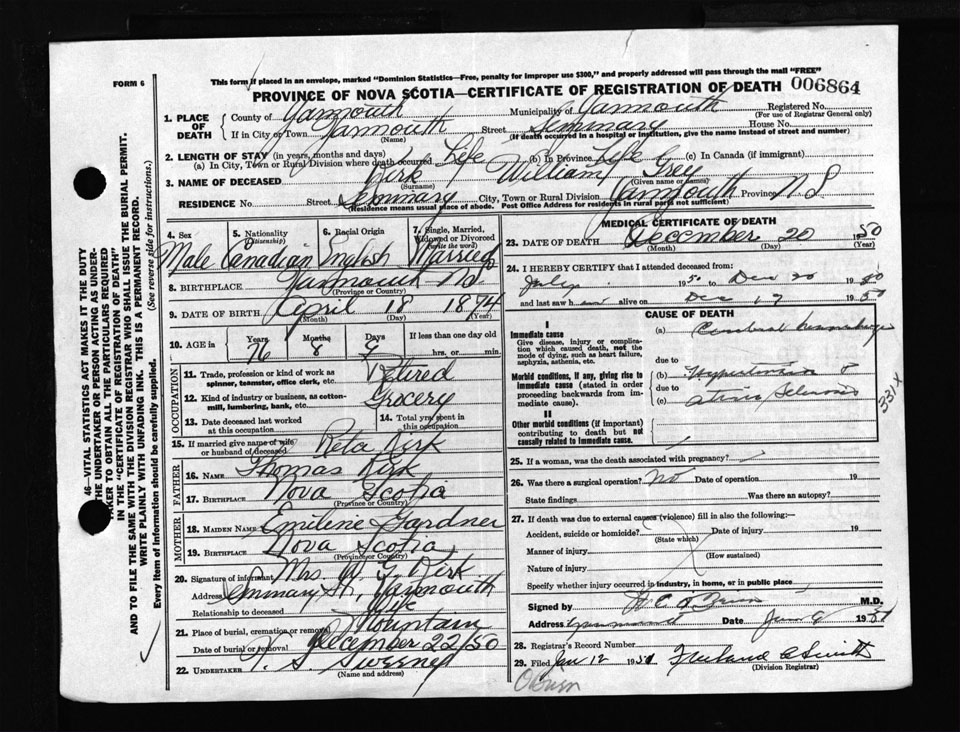 FORM 6
This form if placed in an envelope, marked "Dominion Statistics—Free, penalty for improper use $300," and properly addressed will pass through the mail "FREE"
PROVINCE OF NOVA SCOTIA—CERTIFICATE OF REGISTRATION OF DEATH 006864
1. PLACE OF DEATH County of Yarmouth Municipality of Yarmouth Registered No.
(For use of Registrar General only)
If in City or Town Yarmouth Street Seminary House No.
(Name) (If death occurred in a hospital or institution, give the name instead of street and number)
2. LENGTH OF STAY (in years, months and days)
(a) In City, Town or Rural Division where death occurred Life (b) In Province Life (c) In Canada (if immigrant)
3. NAME OF DECEASED Kirk William Grey
(Surname) (Given name or names)
RESIDENCE No. Street Seminary City, Town or Rural Division Yarmouth Province N S
(Residence means usual place of abode. Post Office Address for residents in rural parts not sufficient)
4. Sex 5. Nationality (Citizenship) 6. Racial Origin 7. Single, Married, Widowed or Divorced (write the word)
Male Canadian English Married
8. BIRTHPLACE Yarmouth N.S.
(Province or Country)
9. DATE OF BIRTH April 18 1874
(Month) (Day) (Year)
10. AGE in Years Months Days If less than one day old
76 8 hrs. or min.
OCCUPATION
11. Trade, profession or kind of work as spinner, teamster, office clerk, etc. Retired
12. Kind of industry or business, as cotton-mill, lumbering, bank, etc. Grocery
13. Date deceased last worked at this occupation 14. Total yrs. spent in this occupation
15. If married give name of wife or husband of deceased Reta Kirk
FATHER
16. NAME Thomas Kirk
17. BIRTHPLACE Nova Scotia
(Province or Country)
MOTHER
18. MAIDEN NAME Emilene Gardner
19. BIRTHPLACE Nova Scotia
(Province or Country)
20. Signature of informant Mrs. W. G. Kirk
Address Seminary St., Yarmouth
Relationship to deceased Wife
21. Place of burial, cremation or removal Mountain
Date of burial or removal December 22/50
22. UNDERTAKER V. S. Sweeney
(Name and address)
MEDICAL CERTIFICATE OF DEATH
23. DATE OF DEATH December 20 1950
(Month) (Day) (Year)
24. I HEREBY CERTIFY that I attended deceased from:
July 1950 to Dec 20 1950
and last saw him alive on Dec 19
CAUSE OF DEATH
I
Immediate cause
Give disease, injury or complication which caused death, not the mode of dying, such as heart failure, asphyxia, asthenia, etc.
(a) Cerebral hemorrhage
due to
Morbid conditions, if any, giving rise to immediate cause (stated in order proceeding backwards from immediate cause).
(b) Hypertension &
due to
(c) Sclerosis
331X
II
Other morbid conditions (if important) contributing to death but not causally related to Immediate cause.
25. If a woman, was the death associated with pregnancy?
26. Was there a surgical operation? No Date of operation 19
State findings Was there an autopsy?
27. If death was due to external causes (violence) fill in also the following:—
Accident, suicide or homicide? Date of injury 19
(State which)
Manner of injury
(How sustained)
Nature of injury
Specify whether injury occurred in industry, in home, or in public place
Signed by M.D.
Address Yarmouth Date Jan 9 1951
28. Registrar's Record Number
29. Filed Jan 12 1951
(Division Registrar)
O'Brien
46—VITAL STATISTICS ACT MAKES IT THE DUTY
THE UNDERTAKER OR PERSON ACTING AS UNDER-
TAKER TO OBTAIN ALL THE PARTICULARS REQUIRED
IN THE "CERTIFICATE OF REGISTRATION OF DEATH"
AND TO FILE THE SAME WITH THE DIVISION REGISTRAR WHO SHALL ISSUE THE BURIAL PERMIT.
WRITE PLAINLY WITH UNFADING INK. THIS IS A PERMANENT RECORD.
Every item of information should be carefully supplied. (See reverse side for instructions.)